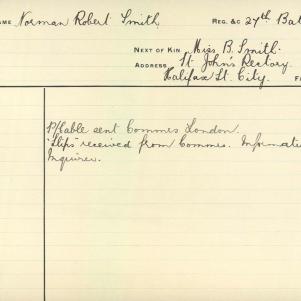 NAME Norman Robert Smith REG. &C 27th Bat
NEXT OF KIN Miss B. Smith.
ADDRESS St. John's Rectory.
Halifax St. City.
P/Cable sent Commes London.
"Slips" received from Commes. Informatio
Inquirer.